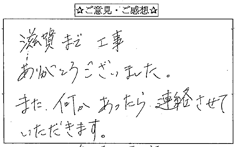 ☆ご意見・ご感想☆
滋賀まで工事
ありがとうございました。
また何かあったら連絡させて
いただきます。